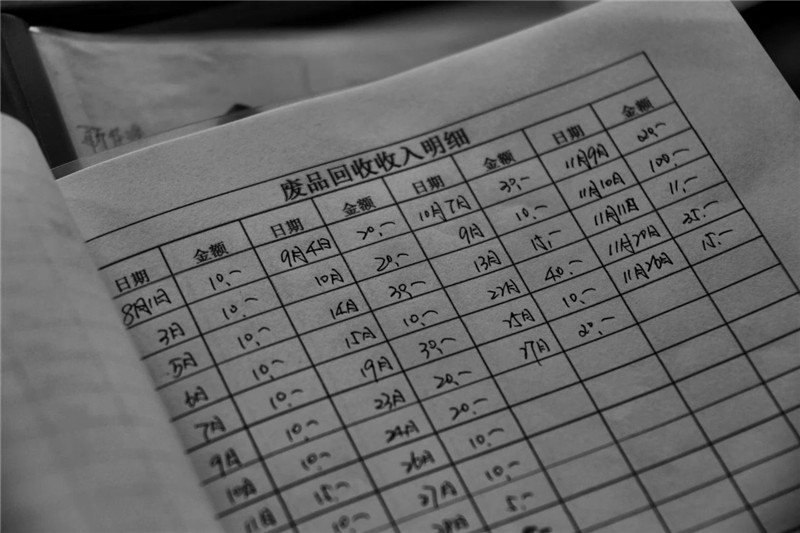 废品回收收入明细
日期 金额 日期 金额 日期 金额 日期 金额
8月1日 10.- 9月4日 20.- 10月7日 30.- 11月9日 20.-
3日 10.- 10日 20.- 9日 10.- 11月10日 100.-
5日 10.- 14日 30.- 13日 15.- 11月11日 11.-
6日 10.- 15日 10.- 22日 40.- 11月20日 35.-
7日 10.- 19日 30.- 25日 10.- 11月26日 15.-
9日 10.- 23日 20.- 27日 20.-
10日 10.- 24日 20.-
11日 15.- 26日 10.-
10.- 27日 10.-
28日 5.-